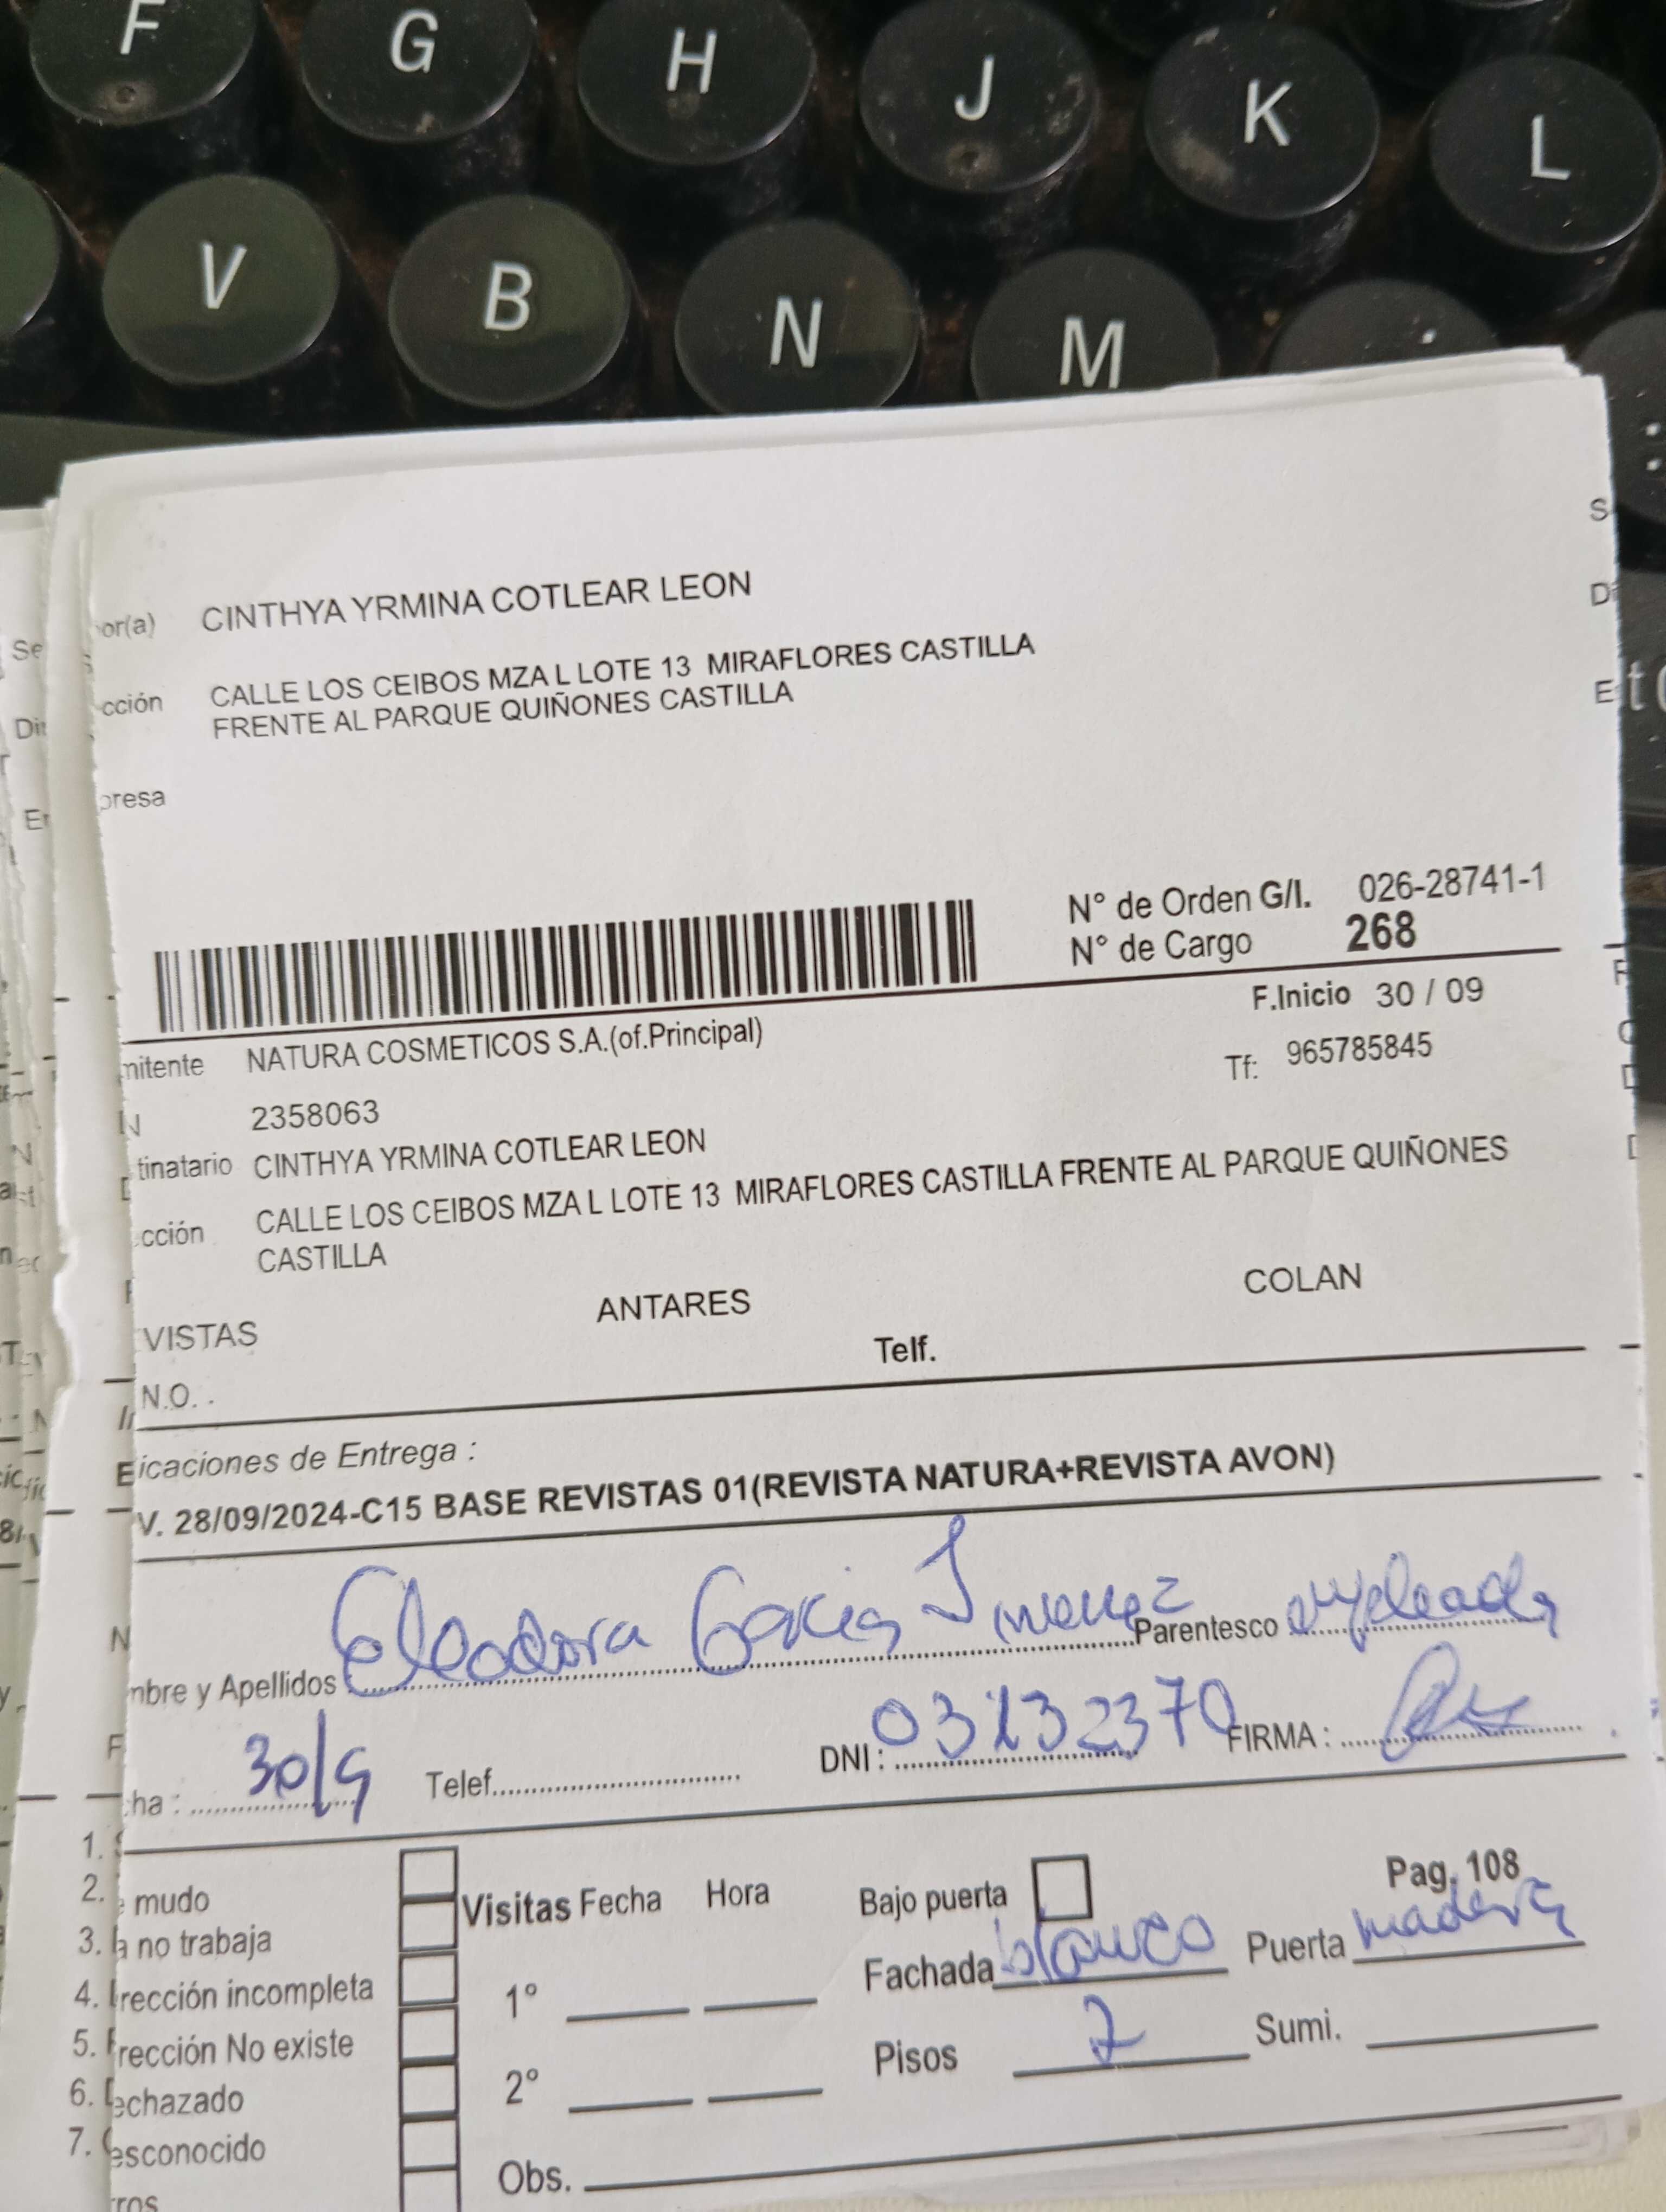 F G H J K L
V B N M
or(a) CINTHYA YRMINA COTLEAR LEON
cción CALLE LOS CEIBOS MZA L LOTE 13 MIRAFLORES CASTILLA
FRENTE AL PARQUE QUIÑONES CASTILLA
presa
N° de Orden G/I. 026-28741-1
N° de Cargo 268
F.Inicio 30 / 09
mitente NATURA COSMETICOS S.A.(of.Principal)
Tf: 965785845
N 2358063
tinatario CINTHYA YRMINA COTLEAR LEON
cción CALLE LOS CEIBOS MZA L LOTE 13 MIRAFLORES CASTILLA FRENTE AL PARQUE QUIÑONES
CASTILLA
VISTAS ANTARES COLAN
N.O. . Telf.
icaciones de Entrega :
V. 28/09/2024-C15 BASE REVISTAS 01(REVISTA NATURA+REVISTA AVON)
mbre y Apellidos Eleodora Garcia Jimenez Parentesco empleada
cha : 30/9 Telef. DNI : FIRMA :
1.
2. mudo
3. a no trabaja
4. rección incompleta
5. rección No existe
6. echazado
7. esconocido
tros
Visitas Fecha Hora
1°
2°
Obs.
Bajo puerta Pag. 108
Fachada blanco Puerta madera
Pisos 2 Sumi.